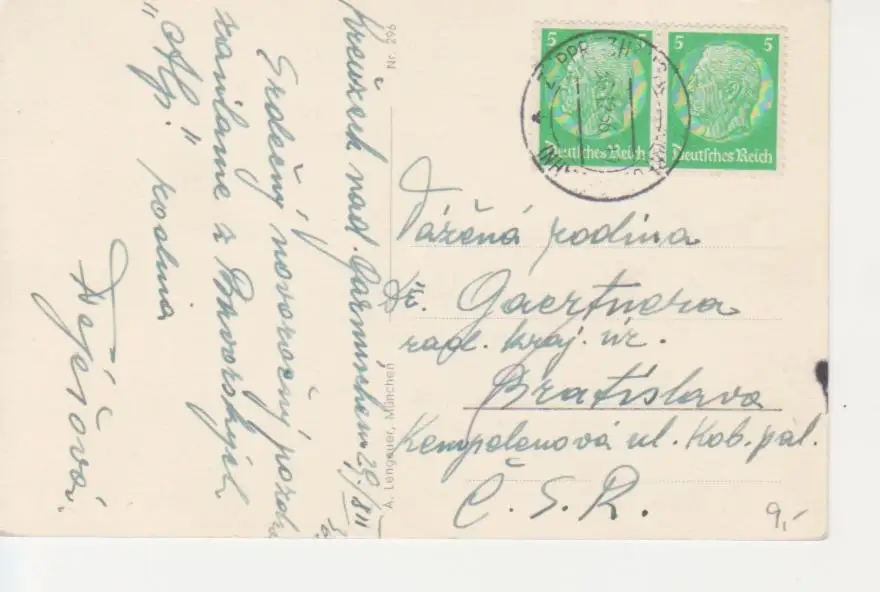 Kreuzeck nad Garmischem 29./XII
Srdečný novoročný pozdrav
zasílame z Bavorských
"Alp." rodina
A. Lengauer, München
Nr. 266
5 5
5 5
Deutsches Reich
Deutsches Reich
Vážená rodina
Dr. Gaertnera
rad. kraj. úr.
Bratislava
Kempelenová ul. Kob. pal.
Č. S. R.
9,-